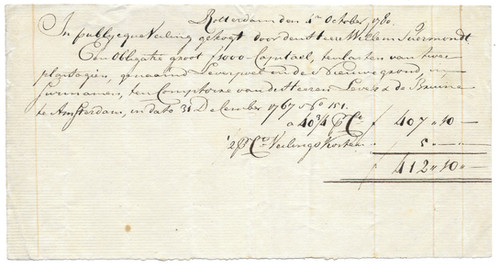 Rotterdam den 1en October 1780.
In publycque Veiling gekogt door den Heer Willem Suermondt
Een Obligatie groot ƒ1000 Capitaal, ten lasten van twee
plantagien, genaamd en de Nieuwegrond, in
Surinamen, ten Comptoire van de Heeren Lever & de Bruine
te Amsterdam, in dato 31 December 1767 No 151.
a 40¾ P Co ƒ 407 „ 10 —
½ P Co Veilings Kosten 5 „ —
ƒ 412 „ 10 —